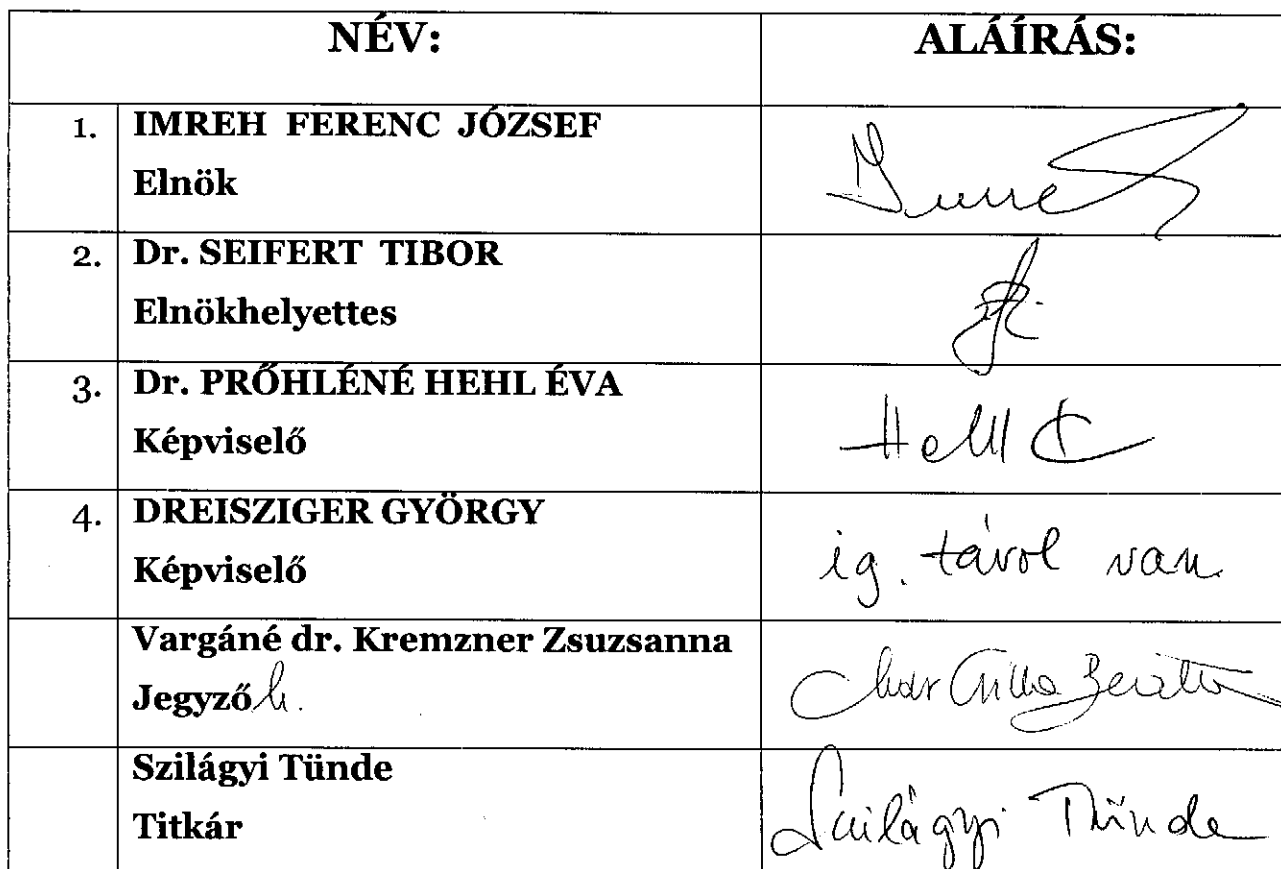 NÉV: ALÁÍRÁS:
1. IMREH FERENC JÓZSEF
Elnök
2. Dr. SEIFERT TIBOR
Elnökhelyettes
3. Dr. PRŐHLÉNÉ HEHL ÉVA
Képviselő
Hehl É
4. DREISZIGER GYÖRGY
Képviselő
ig. távol van
Vargáné dr. Kremzner Zsuzsanna
Jegyző h.
Szilágyi Tünde
Titkár
Szilágyi Tünde